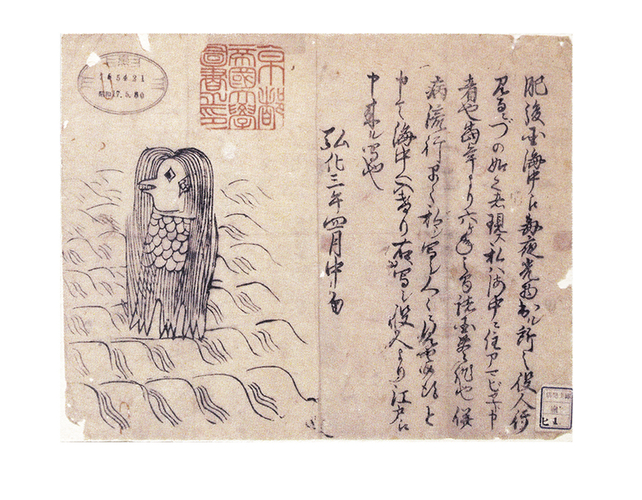 肥後国海中え毎夜光物出ル所之役人行
見るニづの如之者現ス私ハ海中ニ住アマビヱト申
者也当年より六ヶ年之間諸国豊作也併
病流行早々私ヲ写シ人々ニ見せ候得と
申て海中へ入けり右写シ役人より江戸え
申来ル写也
弘化三年四月中旬
京都
帝國大學
圖書之印